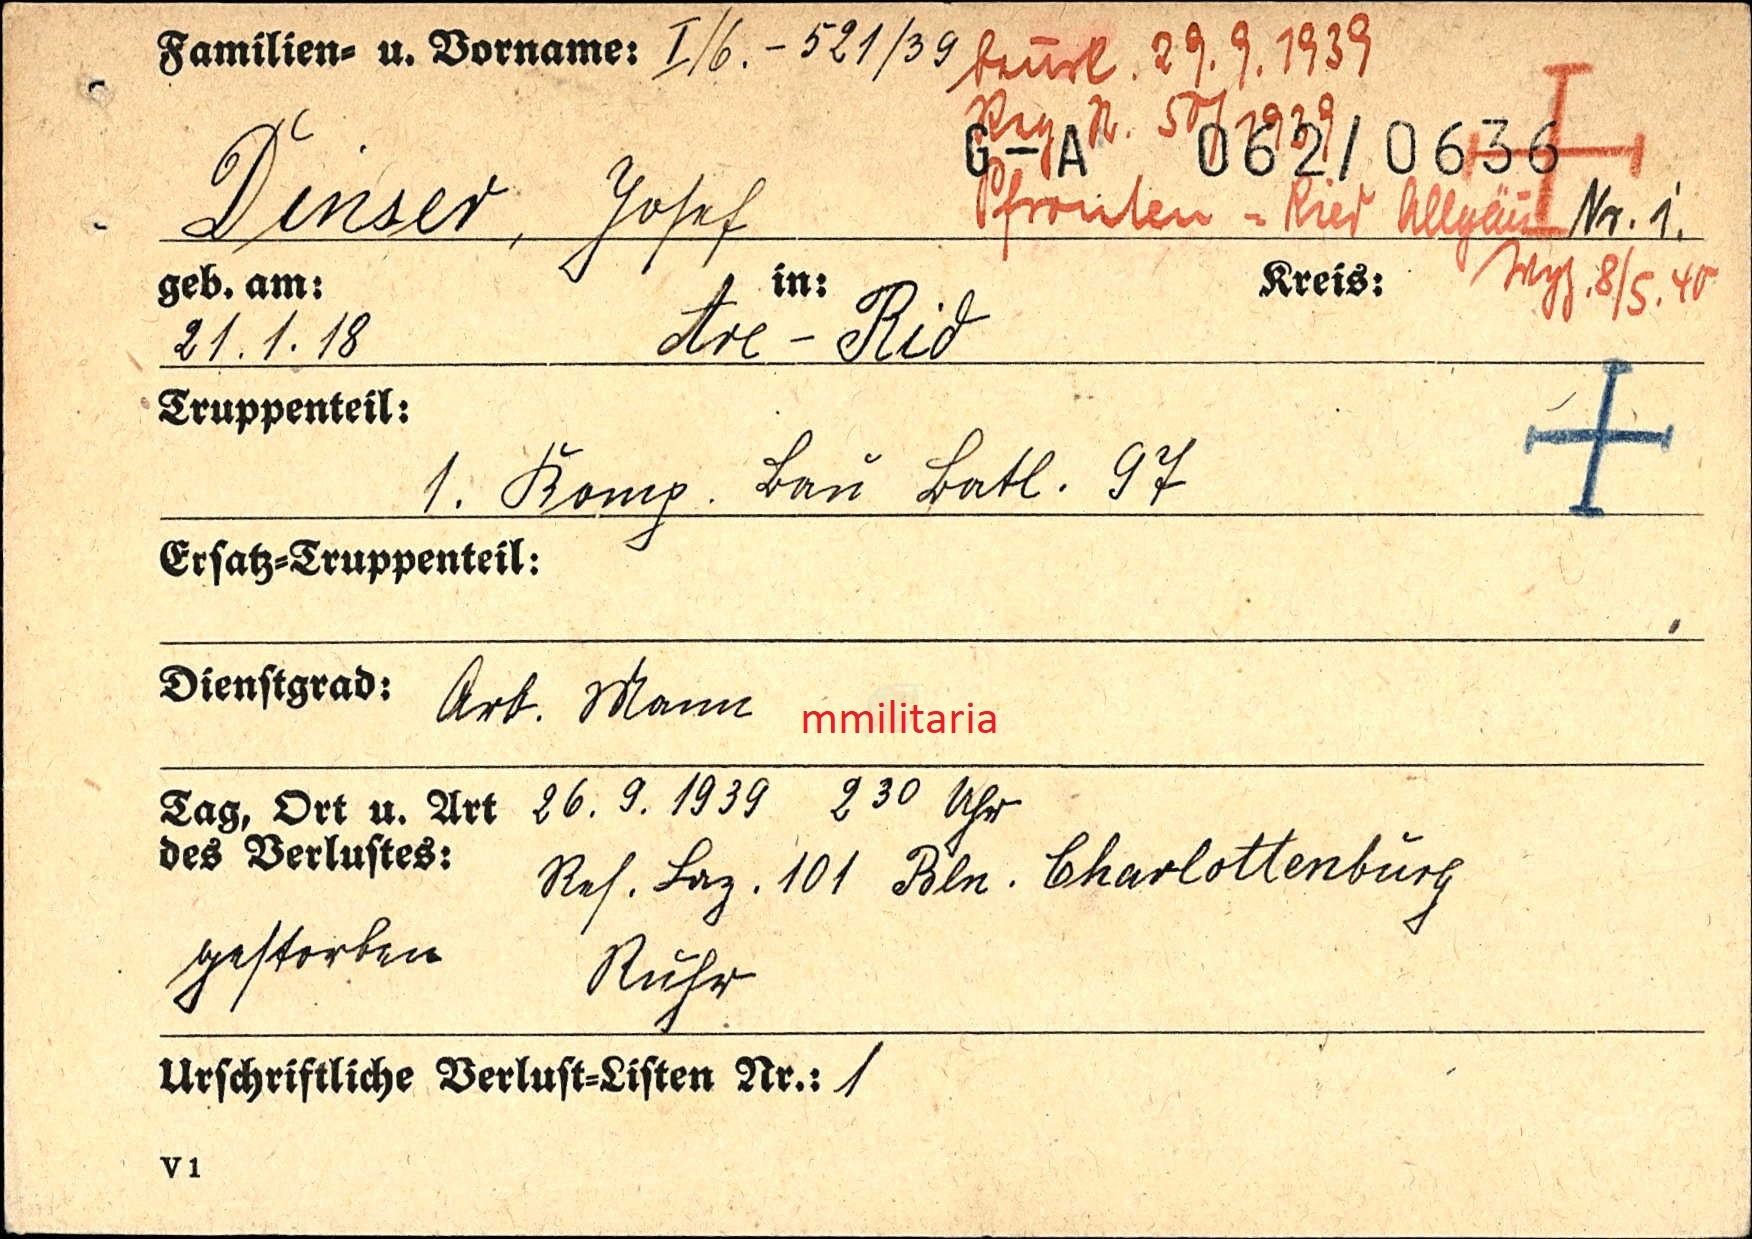 Familien- u. Vorname: I/6. - 521/39 beurk. 29.9.1939
Reg N. 1939
G-A 062/0636
Dinser, Josef Pfronten - Ried Allgäu Nr. 1.
geb. am: in: Kreis: 8/5.40
21.1.18 Are - Rid
Truppenteil:
1. Komp. Bau Batl. 97
Ersatz-Truppenteil:
Dienstgrad: Arb. Mann
mmilitaria
Tag, Ort u. Art 26. 9. 1939 2 30 Uhr
des Verlustes: Res. Laz. 101 Bln. Charlottenburg
gestorben Ruhr
Urschriftliche Verlust-Listen Nr.: 1
V 1